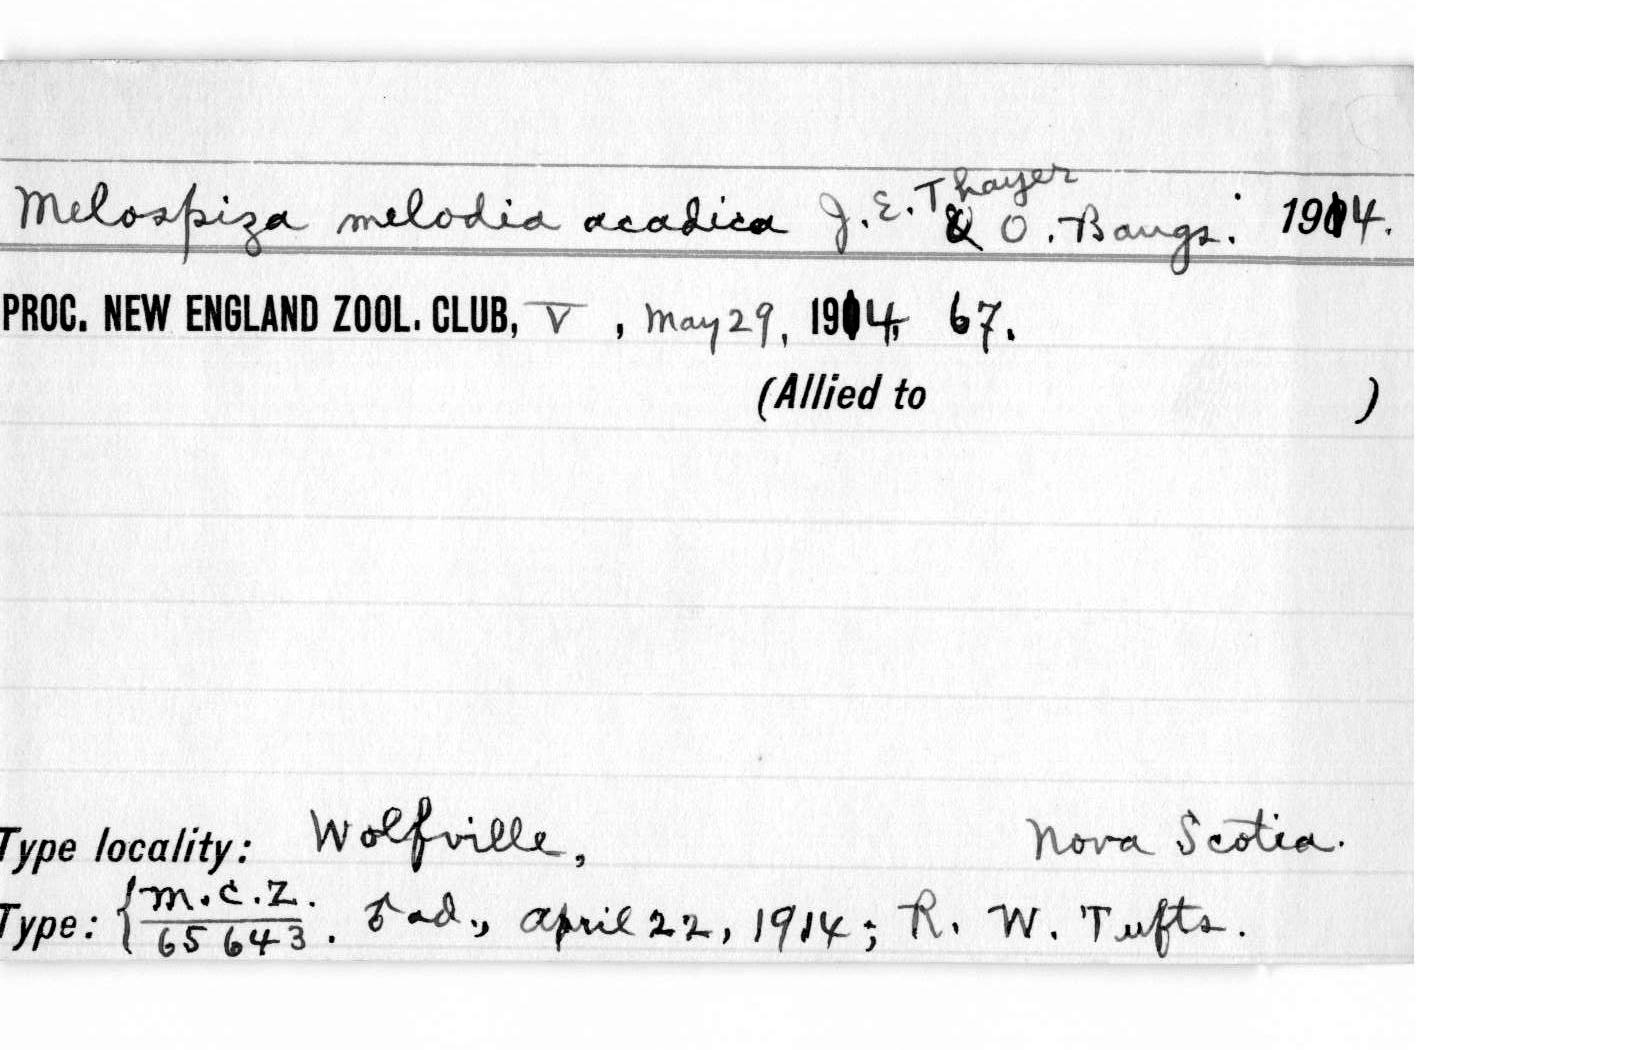 Melospiza melodia acadica J. E. Thayer & O. Bangs. 1914.
PROC. NEW ENGLAND ZOOL. CLUB, V, May 29, 1914, 67.
(Allied to )
Type locality: Wolfville, Nova Scotia.
Type: { M.C.Z. 65643. ♂ ad., April 22, 1914; R. W. Tufts.